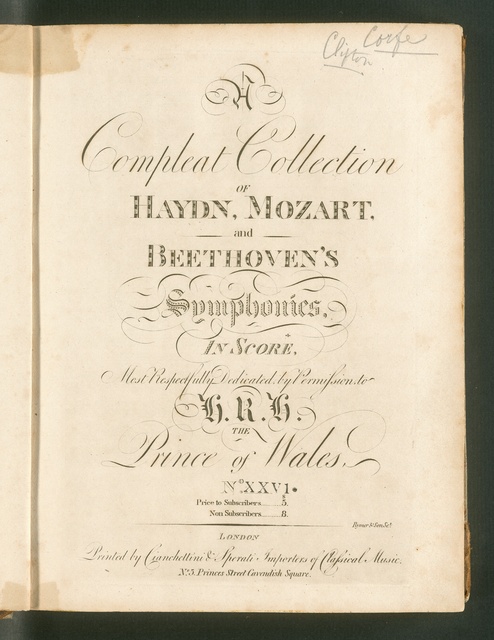 Corfe
Clifton
A
Compleat Collection
OF
HAYDN, MOZART,
and
BEETHOVEN'S
Symphonies,
IN SCORE,
Most Respectfully Dedicated, by Permission, to
H.R.H.
THE
Prince of Wales.
No. XXVI.
s
Price to Subscribers 5.
Non Subscribers 8.
London
Printed by Cianchettini & Sperati Importers of Classical Music.
No. 5, Princes Street Cavendish Square.